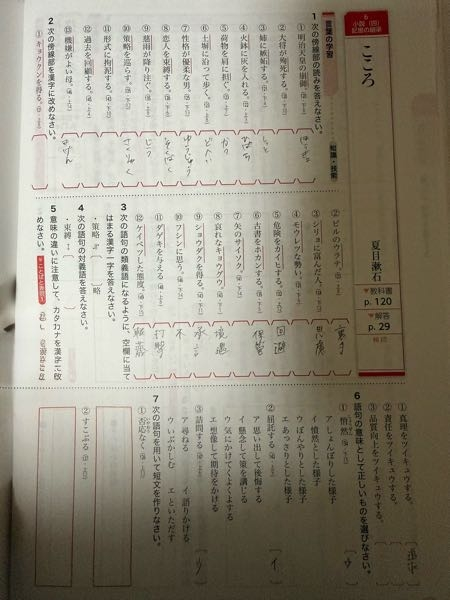 6
小説(四)
記憶の継承
こころ
夏目漱石
▼教科書
p.120
▼解答
p.29
検印
言葉の学習
知識・技術
1 次の傍線部の読みを答えなさい。
①明治天皇の崩御。
②大将が殉死する。
③姉に嫉妬する。
しっと
④火鉢に灰を入れる。
⑤荷物を肩に担ぐ。
⑥土塀に沿って歩く。
どべい
⑦性格が優柔な男。
ゆうじゅう
⑧恋人を束縛する。
そくばく
⑨慈雨が降り注ぐ。
じう
⑩策略を巡らす。
さくりゃく
⑪形式に拘泥する。
⑫過去を回顧する。
⑬機嫌がよい母。
きげん
2 次の傍線部を漢字に改めなさい。
①キョウクンを得る。
②ビルのウラテ。
裏手
③シリョに富んだ人。
思慮
④モウレツな勢い。
⑤危険をカイヒする。
回避
⑥古書をホカンする。
保管
⑦矢のサイソク。
⑧哀れなキョウグウ。
境遇
⑨ショウダクを得る。
承言
⑩フシンに思う。
不
⑪ダゲキを与える
打撃
⑫ケイベツした態度。
軽蔑
3 次の語句の類義語になるように、空欄に当て
はまる漢字一字を答えなさい。
・策略=〔 〕略
4 次の語句の対義語を答えなさい。
・束縛↕〔 〕
5 意味の違いに注意して、カタカナを漢字で改
めなさい。
①真理をツイキュウする。
②責任をツイキュウする。
③品質向上をツイキュウする。
追求
6 語句の意味として正しいものを選びなさい。
①悄然
ア しょんぼりした様子
イ 憤然とした様子
ウ ぼんやりとした様子
エ あっさりとした様子
②屈託する
ア 思い出して後悔する
イ 懸念して策を講じる
ウ 気にかけてくよくよする
エ 想像して期待をかける
イ
③詰問する
ア 尋ねる
イ 語りかける
ウ いぶかしむ
エ といただす
7 次の語句を用いて短文を作りなさい。
①否応なく
②すこぶる